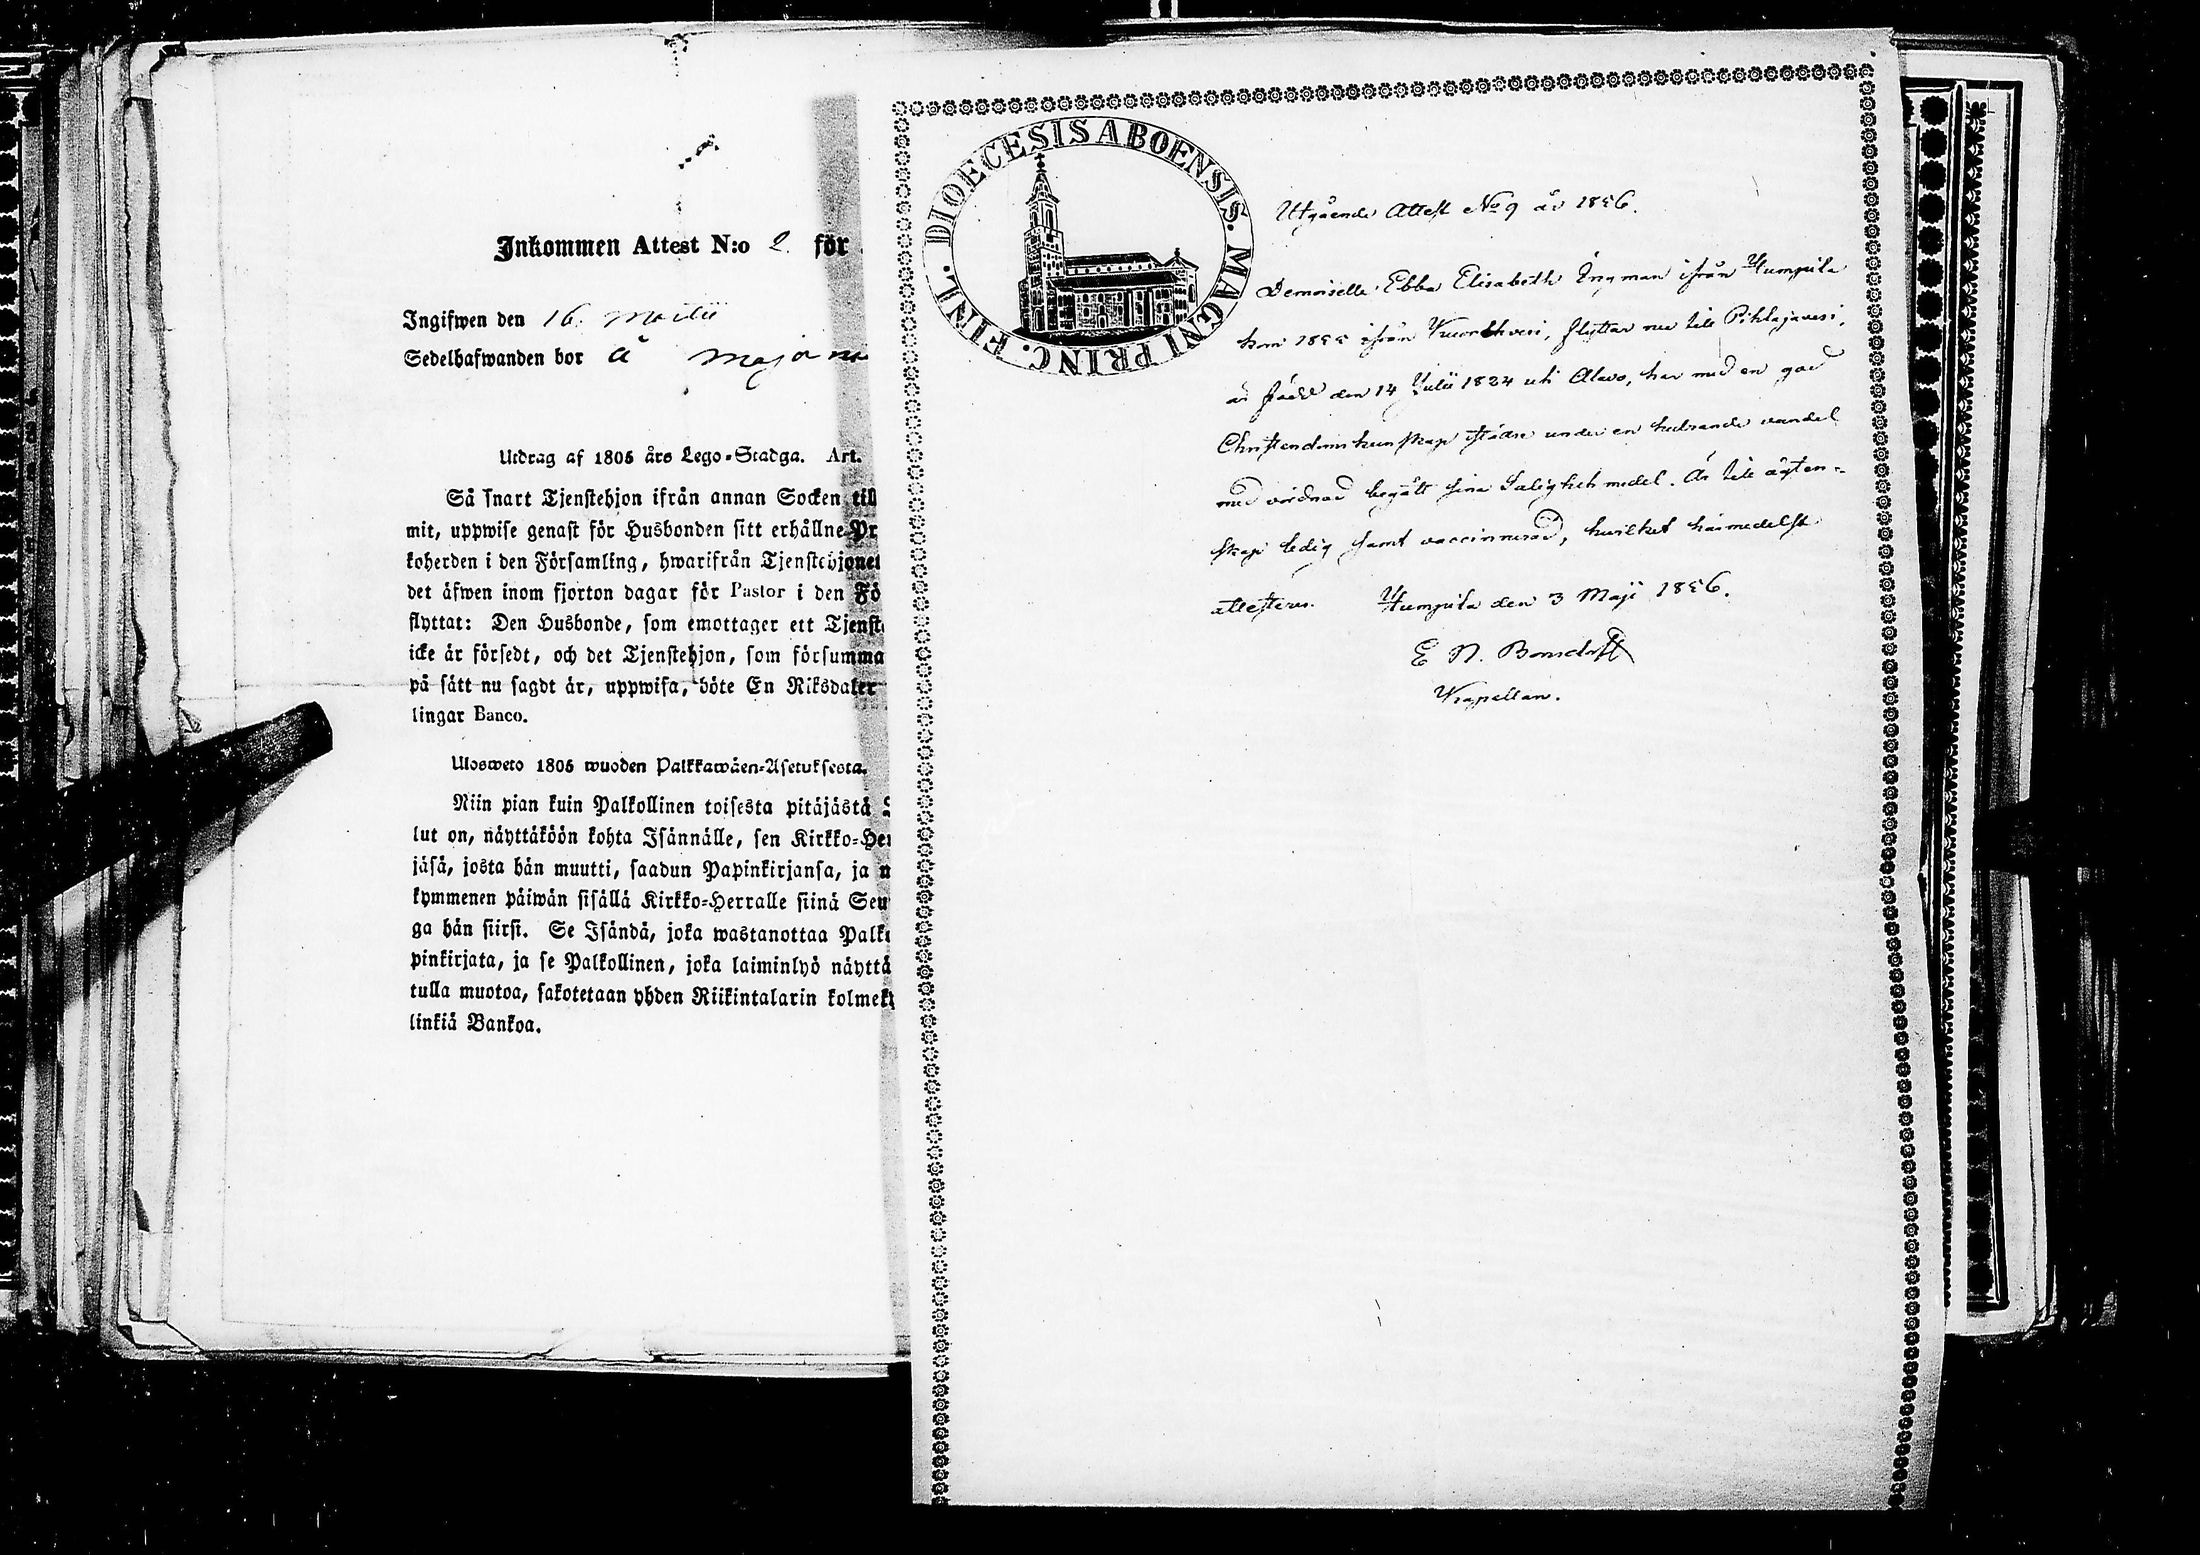 Inkommen Attest N:o 2 för
Ingifwen den 16. Martii
Sedelhafwanden bor å Majama
Utdrag af 1805 års Lego-Stadga. Art.
Så snart Tjenstehjon ifrån annan Socken till
mit, uppwise genast för Husbonden sitt erhållne Pr
koherden i den Församling, hwarifrån Tjenstehjonet
det äfwen inom fjorton dagar för Pastor i den Fö
flyttat: Den Husbonde, som emottager ett Tjenste
icke är försedt, och det Tjenstehjon, som försumma
på sätt nu sagdt är, uppwisa, böte En Riksdaler
lingar Banco.
Ulosweto 1805 wuoden Palkkawäen-Asetuksesta.
Niin pian kuin Palkollinen toisesta pitäjästä
lut on, näyttäköön kohta Isännälle, sen Kirkko-Her
jäsä, josta hän muutti, saadun Papinkirjansa, ja n
kymmenen päiwän sisällä Kirkko-Herralle siinä Seu
ga hän siirsi. Se Isändä, joka wastanottaa Palko
pinkirjata, ja se Palkollinen, joka laiminlyö näyttä
tulla muotoa, sakotetaan yhden Riikintalarin kolmeky
linkiä Bankoa.
DIOECESIS ABOENSIS. MAGNI PRINC. FINL.
Utgående Attest No 9 år 1856.
Demoiselle Ebba Elisabeth Ingman ifrån Humpila
kom 1855 ifrån Kuorehvesi, flyttar nu till Pihlajavesi,
är född den 14 Julii 1824 uti Alavo, har med en god
Christendomskunskap städse under en hedrande vandel
med vördnad begått sina Salighets medel. Är till ägten-
skap ledig samt vaccinerad, hvilket härmedelst
attesteras. Humpila den 3 Maji 1856.
E N. Bonsdorff
Kapellan.